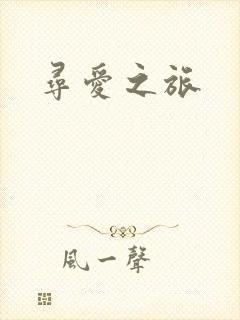 尋愛之旅
風一聲